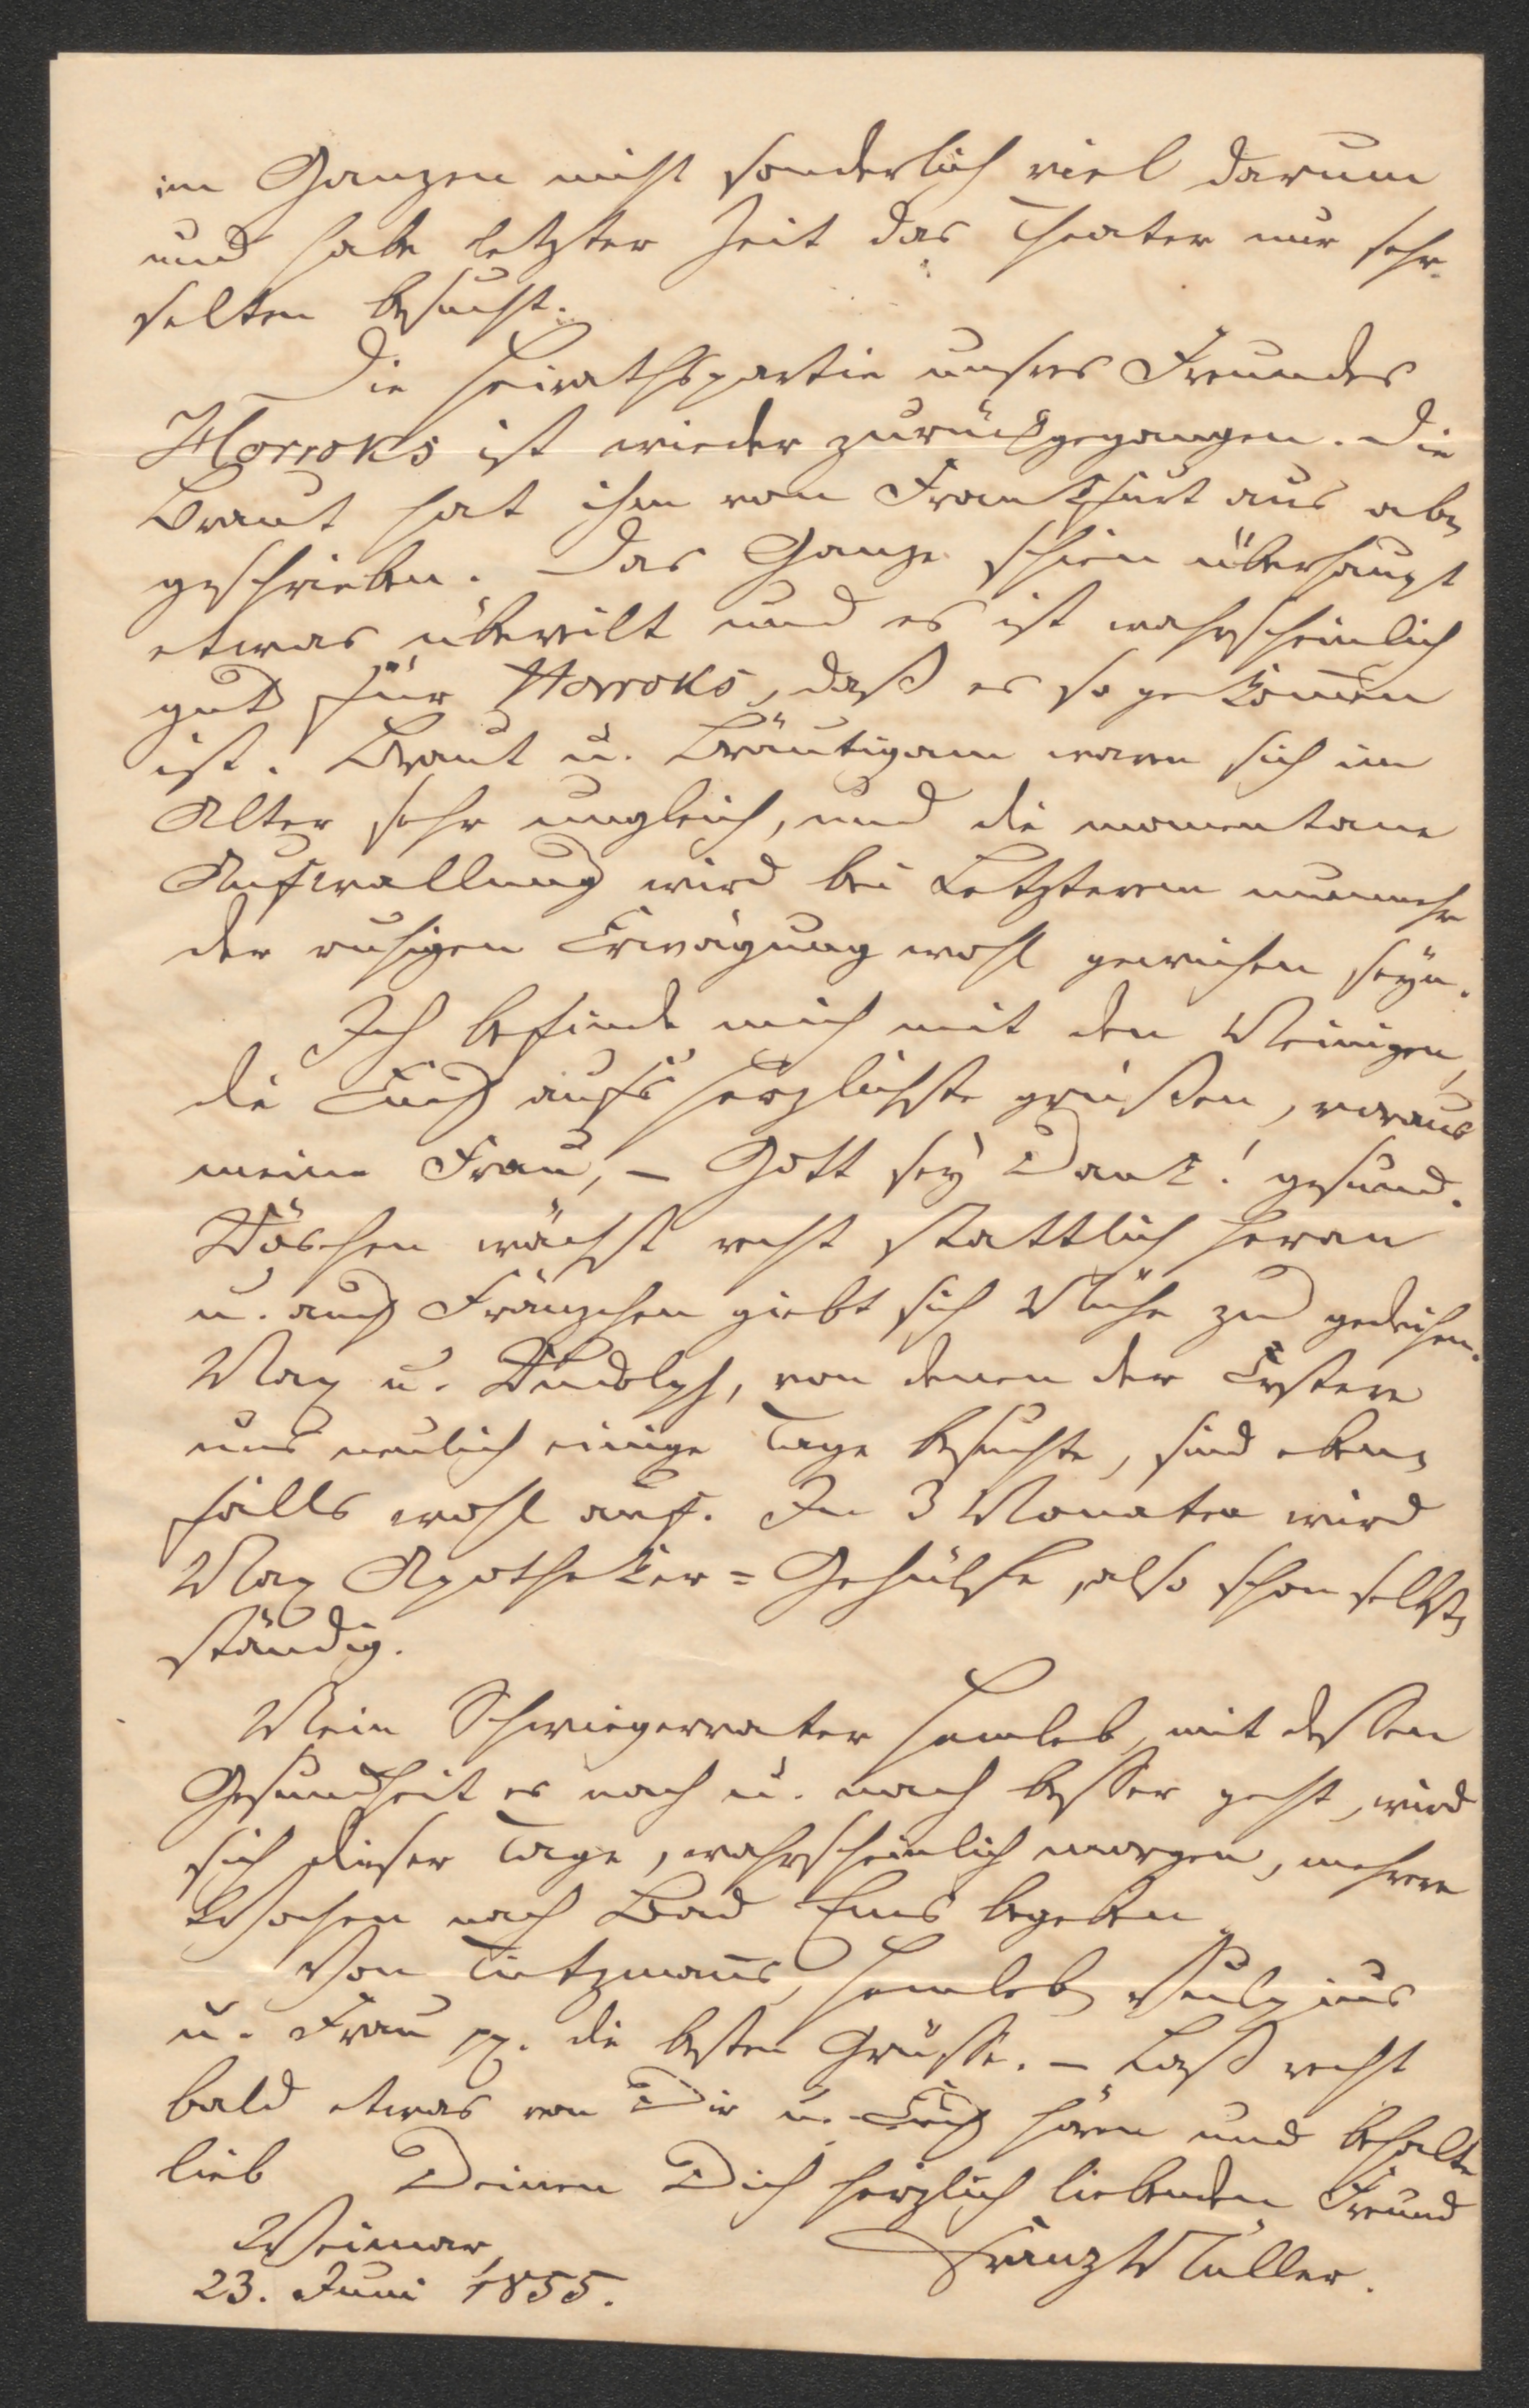 im Ganzen nicht sonderlich viel darum
und habe letzter Zeit das Theater nur sehr
selten besucht.
Die Heirathspartie unsres Freundes
Horroks ist wieder zurückgegangen. Die
Braut hat ihm von Frankfurt aus ab-
geschrieben. Das Ganze schien überhaupt
etwas übereilt und es ist wahrscheinlich
gut für Horroks, daß es so gekom̅en
ist. Braut u. Bräutigam waren sich im
Alter sehr ungleich, und die momentane
Aufwallung wird bei Letzterem nunmehr
der ruhigen Erwägung wohl gewichen seyn.
Ich befinde mich mit den Meinigen,
die Euch aufs herzlichste grüßen, voraus
meine Frau, – Gott sey Dank! gesund.
Röschen wächst recht stattlich heran
u. auch Fränzchen giebt sich Mühe zu gedeihen.
Max u. Rudolph, von denen der Erstere
uns neulich einige Tage besuchte, sind eben-
falls wohl auf. In 3 Monaten wird
Max Apotheker=Gehülfe, also schon selbst-
ständig.
Mein Schwiegervater Hemleb, mit dessen
Gesundheit es nach u. nach besser geht, wird
sich dieser Tage, wahrscheinlich morgen, mehrere
Wochen nach Bad Ems begeben.
Von Tietzman̅s, Hemleb, Vulpius
u. Frau pp. die besten Grüße. – Laß recht
bald etwas von Dir u. Euch hören und behalte
lieb Deinen Dich herzlich liebenden Freund
Weimar, Franz Müller.
23. Juni 1855.